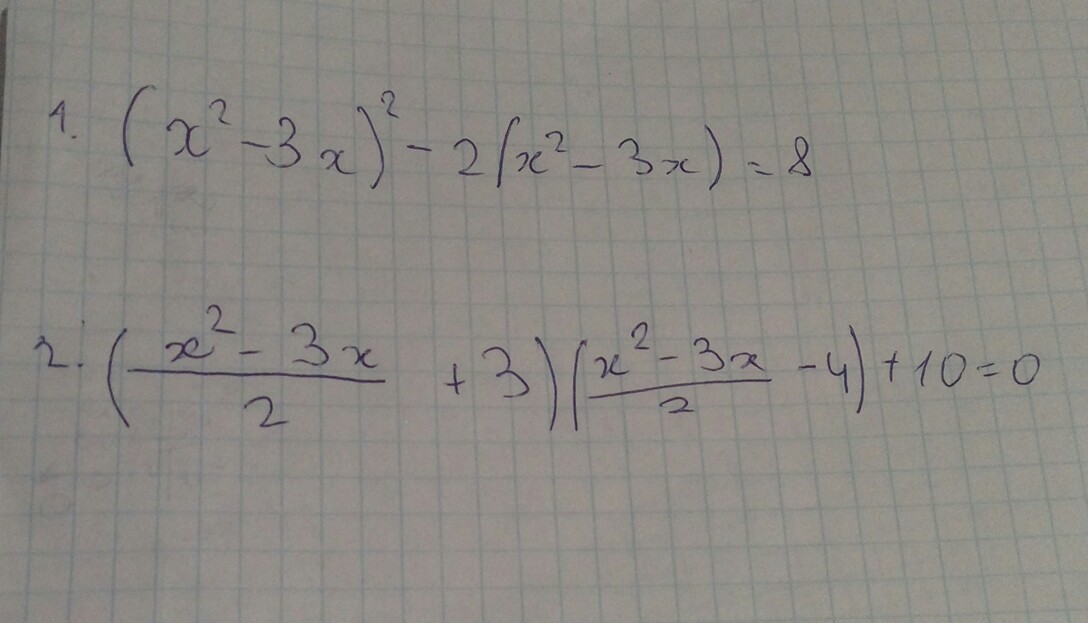 1. (x² - 3x)² - 2(x² - 3x) = 8
2. ((x² - 3x)/2 + 3)((x² - 3x)/2 - 4) + 10 = 0